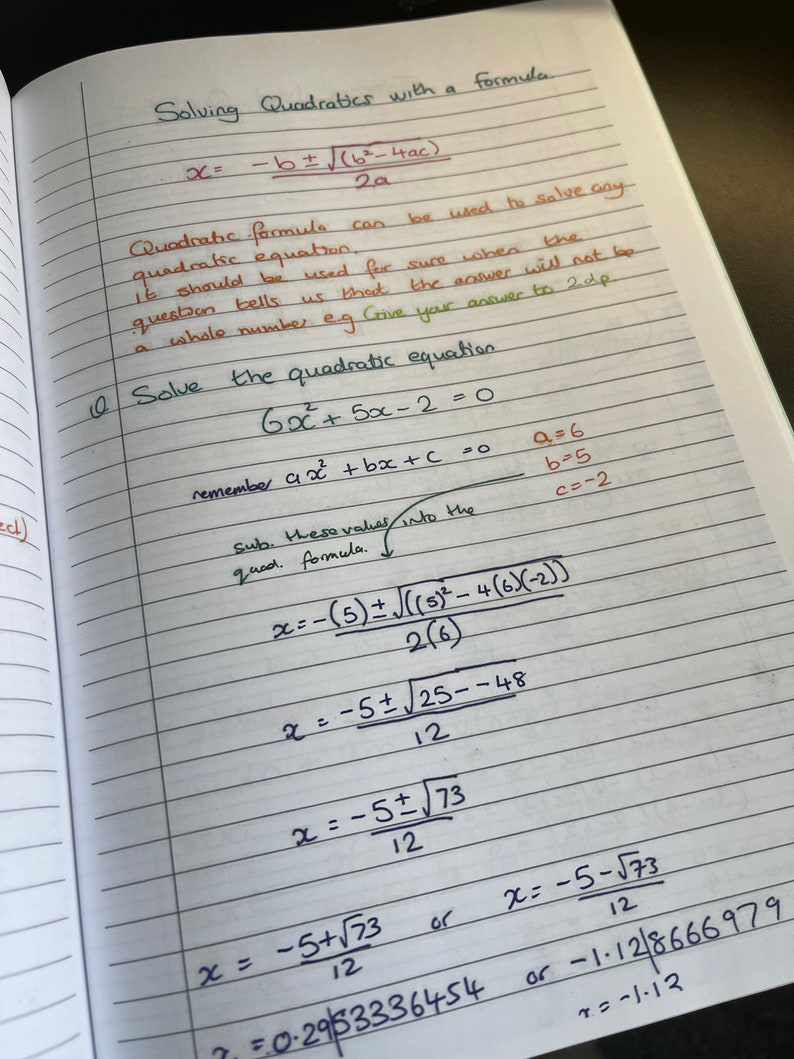 Solving Quadratics with a formula.
x = -b ± √(b² - 4ac)
2a
Quadratic formula can be used to solve any
quadratic equation.
it should be used for sure when the
question tells us that the answer will not be
a whole number e.g Give your answer to 2dp
Q Solve the quadratic equation
6x² + 5x - 2 = 0
remember ax² + bx + c = 0
a = 6
b = 5
c = -2
sub. these values into the
quad. formula.
x = -(5) ± √((5)² - 4(6)(-2))
2(6)
x = -5 ± √25 - -48
12
x = -5 ± √73
12
x = -5 + √73 or x = -5 - √73
12 12
x = 0.29|53336454 or -1.12|8666979
x = -1.12